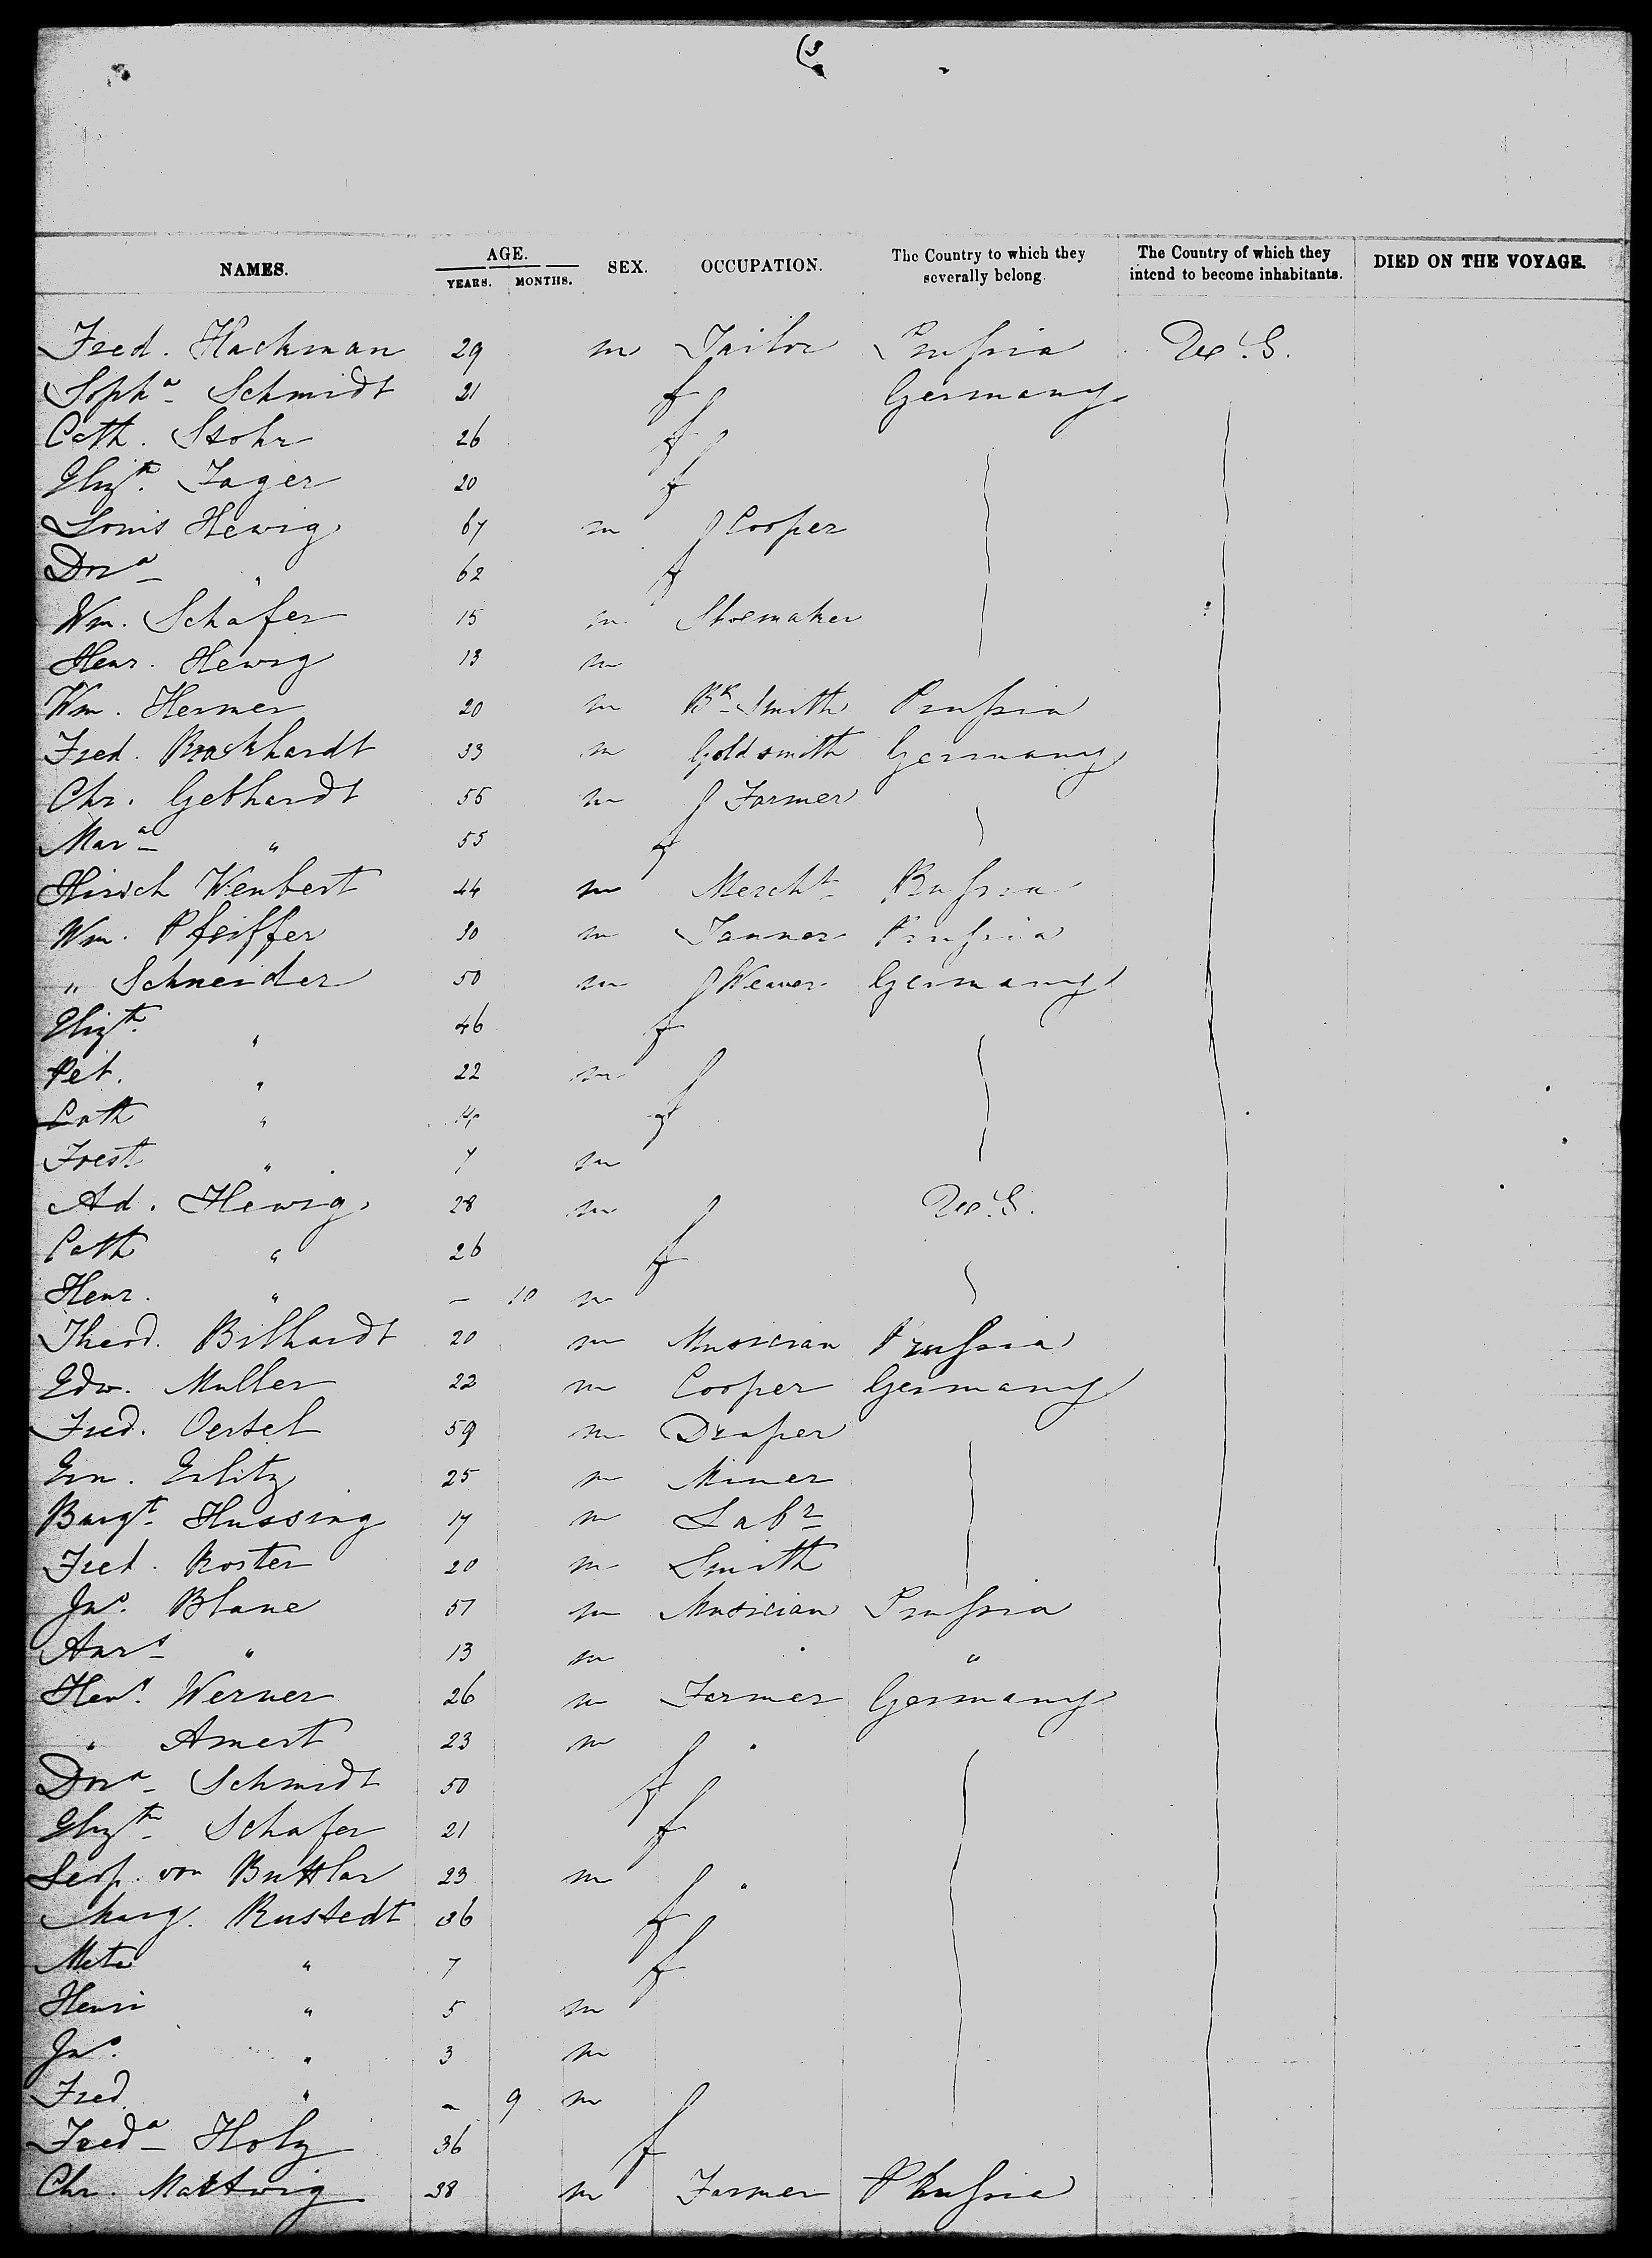 (3
NAMES. AGE. YEARS. MONTHS. SEX. OCCUPATION. The Country to which they severally belong. The Country of which they intend to become inhabitants. DIED ON THE VOYAGE.
Fred. Hackman 29 m Tailor Prussia U.S.
Sopha Schmidt 21 f Germany
Cath. Stohr 26 f
Elizth. Jager 20 f
Louis Hewig 67 m Cooper
Dora " 62 f
Wm. Schafer 15 m Shoemaker
Henr. Hewig 13 m
Wm. Hermer 20 m Bk Smith Prussia
Fred. Brockhardt 33 m Goldsmith Germany
Chr. Gebhardt 55 m Farmer
Mara " 55 f
Hirsch Wenbert 44 m Mercht Russia
Wm. Pfeiffer 30 m Tanner Prussia
" Schneider 50 m Weaver Germany
Elizth. " 46 f
Pet. " 22 m
Cath " 14 f
" 7 m
Ad. Hewig 28 m U.S.
Cath " 26 f
Henr. " – 10 m
Theod. Bilhardt 20 m Musician Prussia
Edw. Muller 22 m Cooper Germany
Fred. Oertel 59 m Draper
Ern. Erlitz 25 m Miner
Hussing 17 m Labr
Fred. Koster 20 m Smith
Jno. Blane 57 m Musician Prussia
" 13 m "
Henr. Werner 26 m Farmer Germany
" Amert 23 m "
Dora Schmidt 50 f
Elizth Schafer 21 f
Leop. von Buttlar 23 m "
Marg. Rustedt 36 f
Meta " 7 f
Henri " 5 m
Jno. " 3 m
Fred " – 9 m
Freda Holz 36 f
Chr. Mattwig 38 m Farmer Prussia